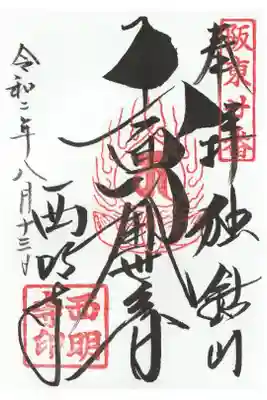 阪東廿番
奉拝 独鈷山
十一面観世音
令和二年八月十三日
西明寺
西明寺印